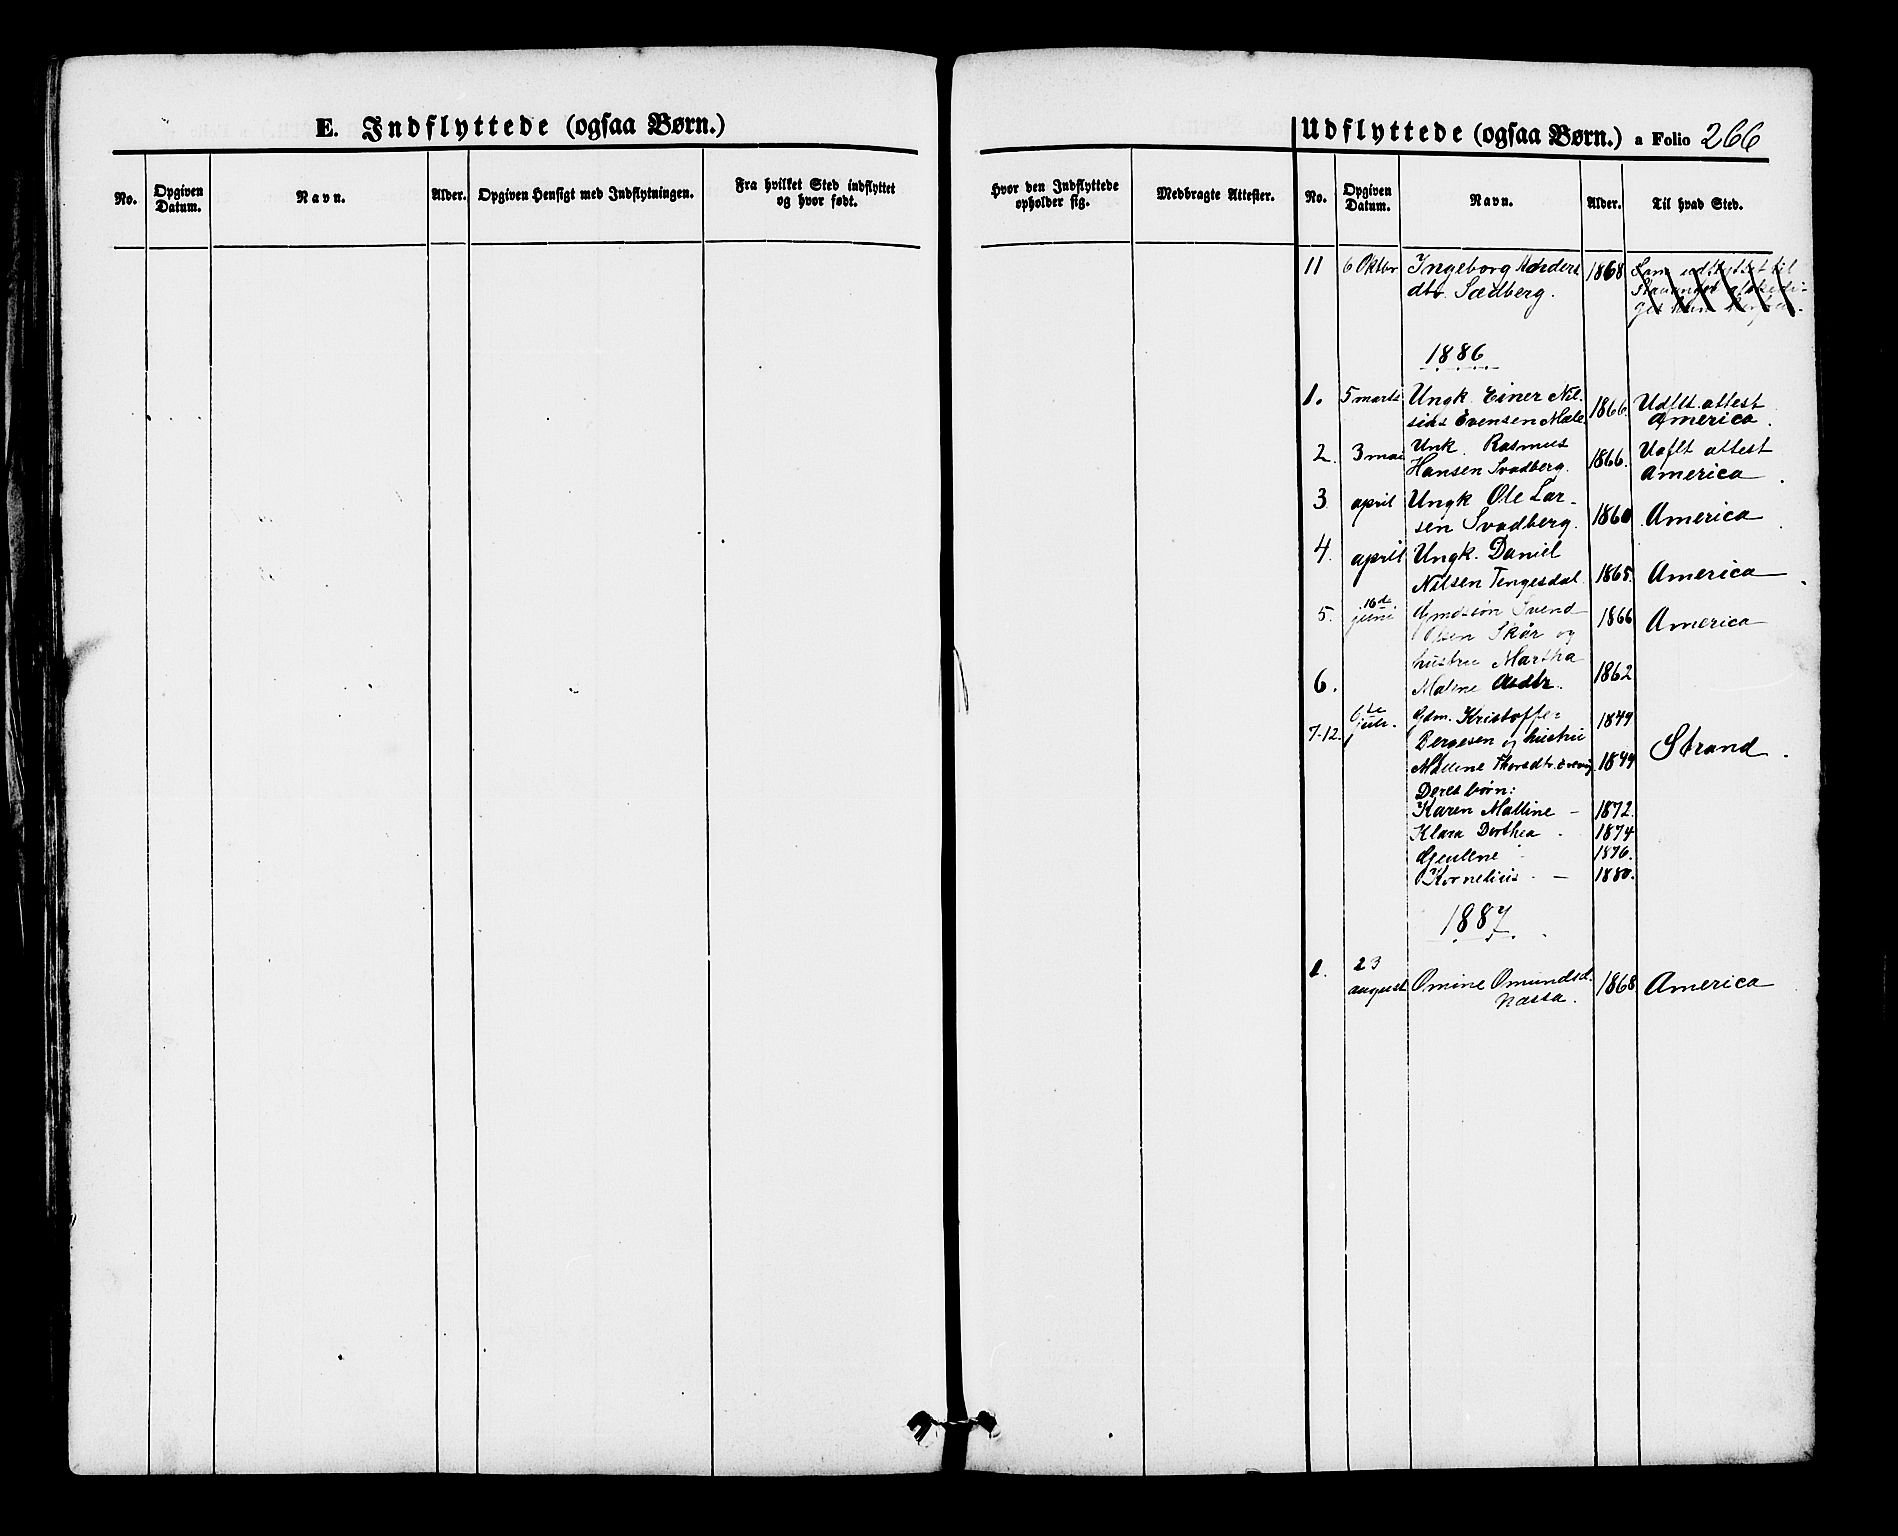 E. Indflyttede (ogsaa Børn.)
No.
Opgiven
Datum.
Navn.
Alder.
Opgiven Hensigt med Indflytningen.
Fra hvilket Sted indflyttet
og hvor født.
Hvor den Indflyttede
opholder sig.
Medbragte Attester.
Udflyttede (ogsaa Børn.) a Folio 266
No.
Opgiven
Datum.
Navn.
Alder.
Til hvad Sted.
11 6 Oktbr Ingeborg 1868
dtr. Sædberg.
1886
1. 5 marts Ungk. Einer Nil- 1866. Udflt. attest
sius Evensen Mæle. America.
2. 3 mai Unk. Rasmus 1866. Udflt attest
Hansen Svadberg. America
3 april Ungk Ole Lar- 1860 America
sen Svadberg.
4. april Ungk. Daniel
Nilsen Tengesdal 1865. America
5. 16de juni Gmdsøn Svend 1866 America
Olsen Skår og
hustru Martha
6. Malene 1862
7-12. 6te juli. Gdm. Kristoffer 1849
Bergesen og hustru Strand.
Mallene Thorsdtr. 1844
Deres børn:
Karen Malline - 1872.
Klara Dorthea - 1874
1876.
Kornelius - 1880.
1887
1. 23
august Omine Omundsd. 1868 America
Næssa.